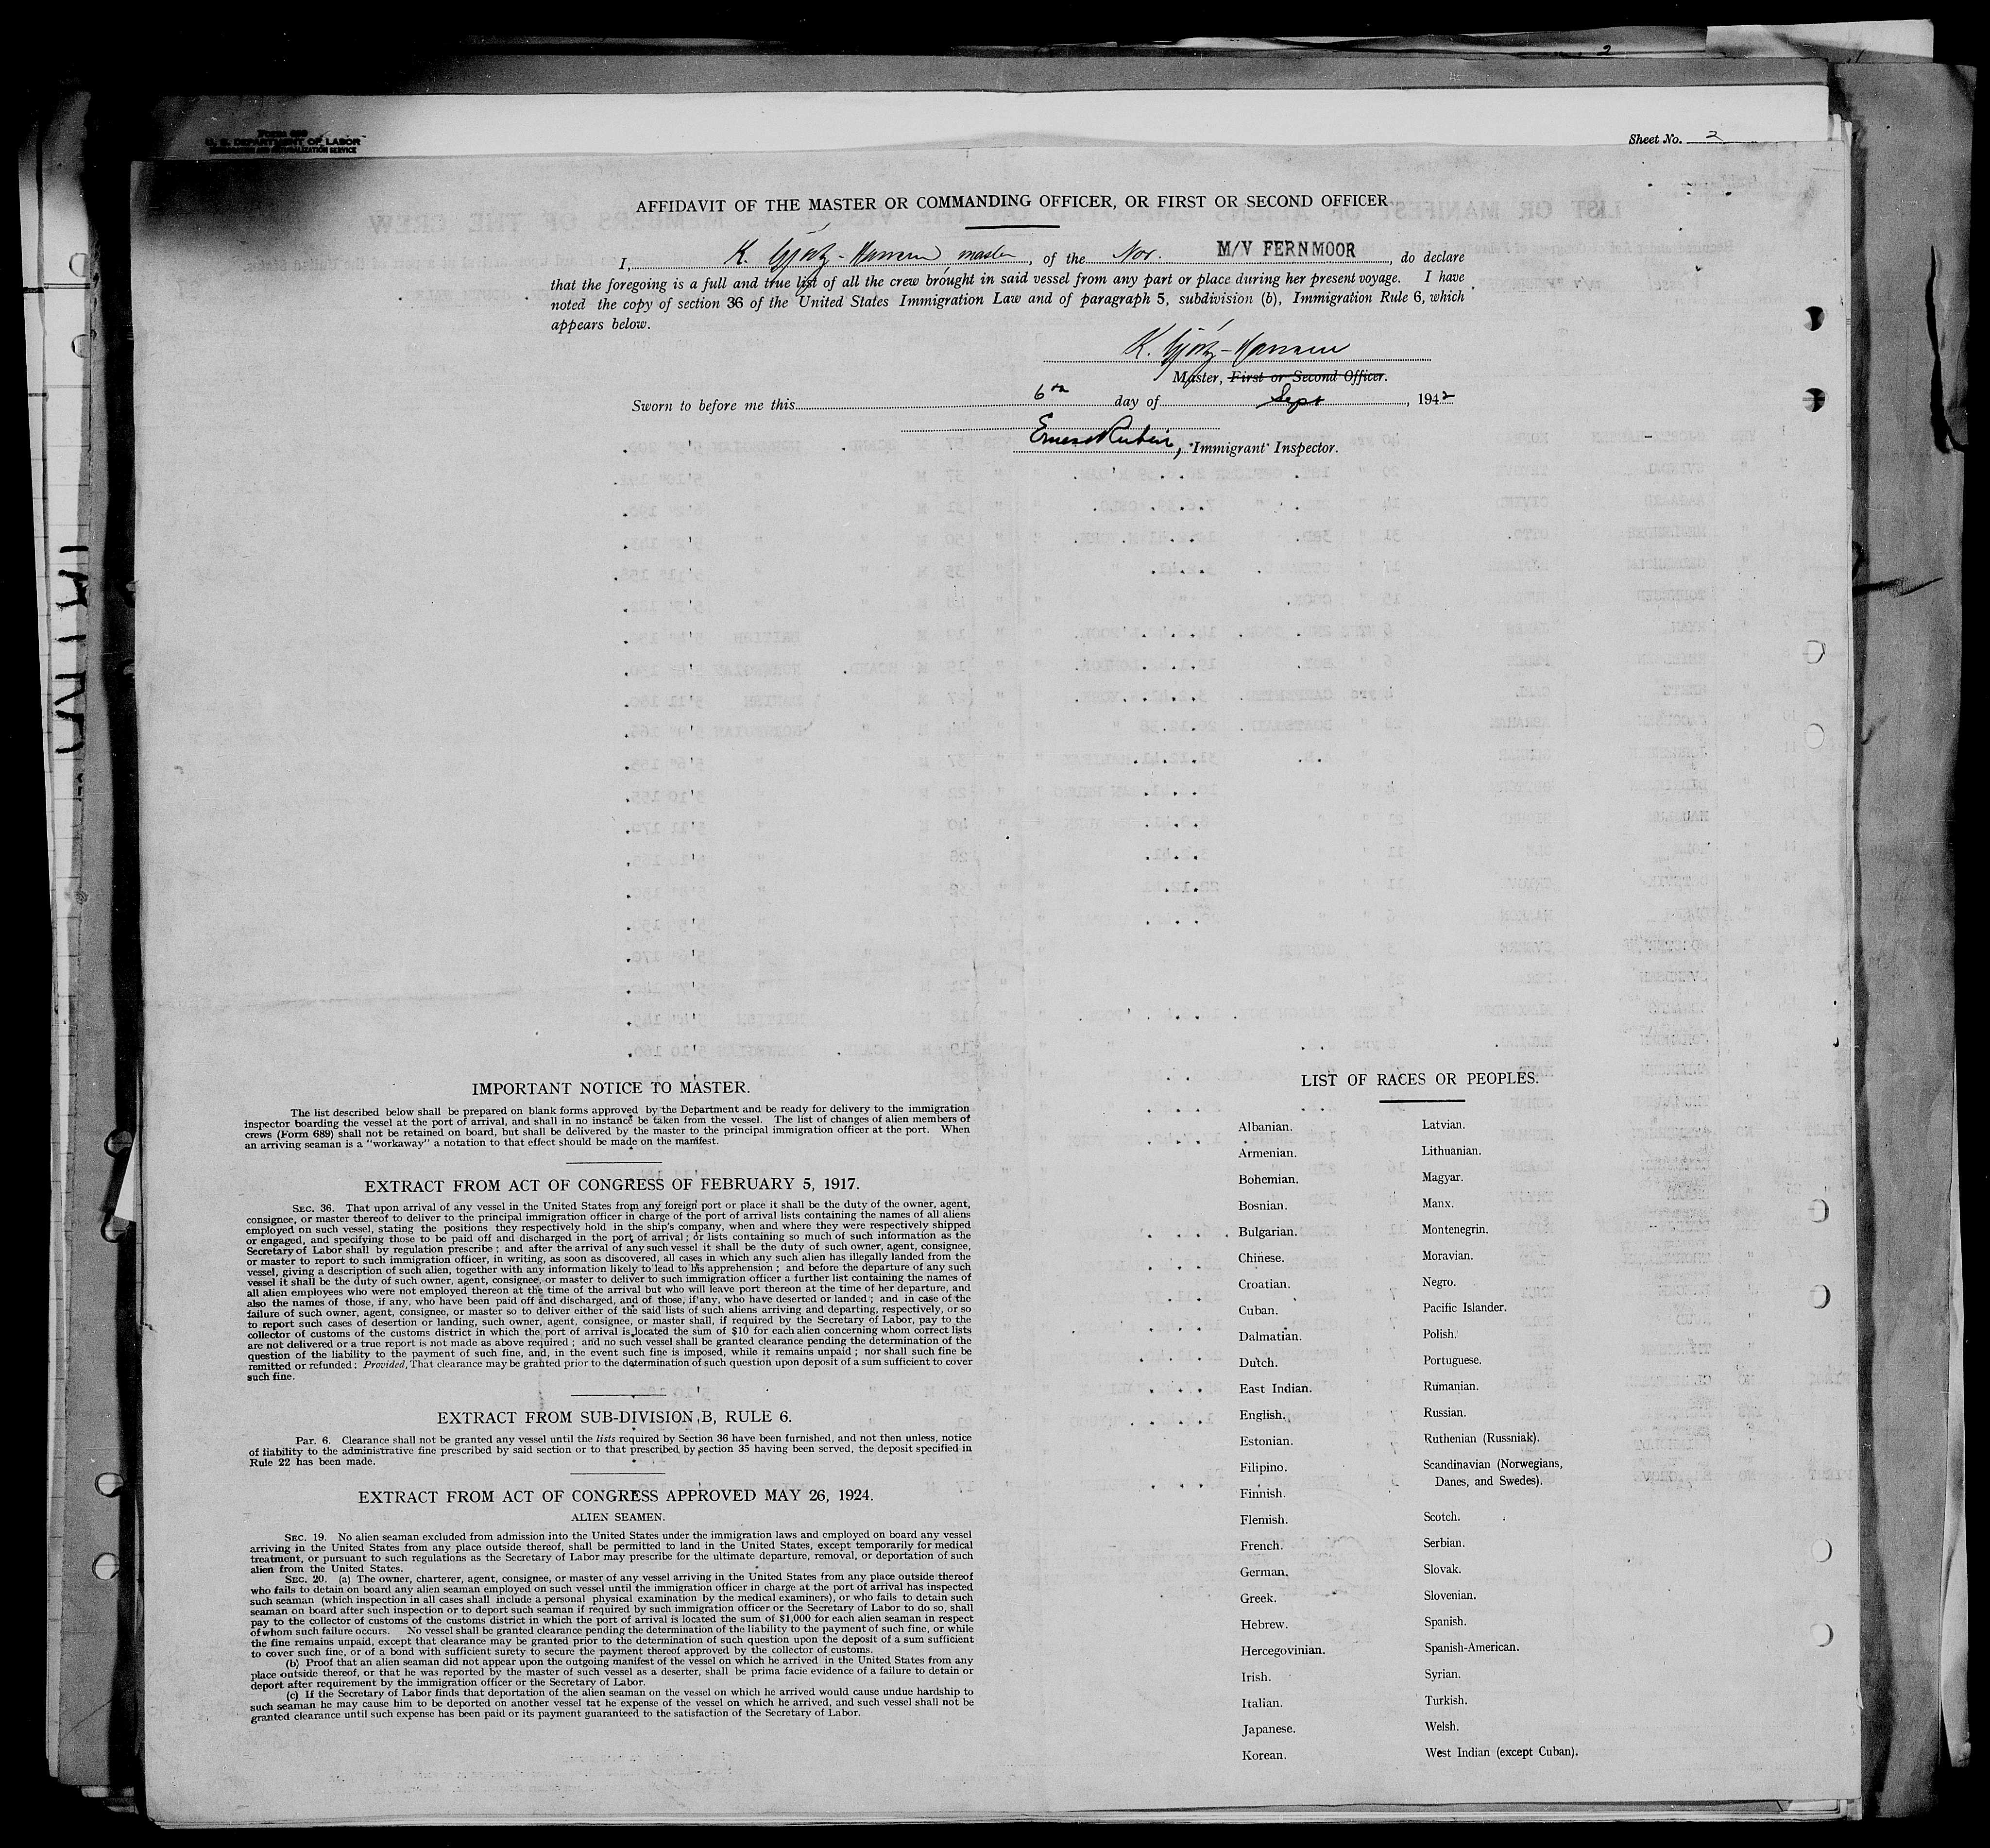 2
FORM 689
U. S. DEPARTMENT OF LABOR
IMMIGRATION AND NATURALIZATION SERVICE
Sheet No. 2
AFFIDAVIT OF THE MASTER OR COMMANDING OFFICER, OR FIRST OR SECOND OFFICER
I, K. Gjertz-Hansen, master, of the Nor. M/V FERNMOOR, do declare
that the foregoing is a full and true list of all the crew brought in said vessel from any part or place during her present voyage. I have
noted the copy of section 36 of the United States Immigration Law and of paragraph 5, subdivision (b), Immigration Rule 6, which
appears below.
K. Gjertz-Hansen
Master, First or Second Officer.
Sworn to before me this 6th day of Sept, 1942
Ernest Rubin, Immigrant Inspector.
IMPORTANT NOTICE TO MASTER.
The list described below shall be prepared on blank forms approved by the Department and be ready for delivery to the immigration
inspector boarding the vessel at the port of arrival, and shall in no instance be taken from the vessel. The list of changes of alien members of
crews (Form 689) shall not be retained on board, but shall be delivered by the master to the principal immigration officer at the port. When
an arriving seaman is a "workaway" a notation to that effect should be made on the manifest.
EXTRACT FROM ACT OF CONGRESS OF FEBRUARY 5, 1917.
SEC. 36. That upon arrival of any vessel in the United States from any foreign port or place it shall be the duty of the owner, agent,
consignee, or master thereof to deliver to the principal immigration officer in charge of the port of arrival lists containing the names of all aliens
employed on such vessel, stating the positions they respectively hold in the ship's company, when and where they were respectively shipped
or engaged, and specifying those to be paid off and discharged in the port of arrival; or lists containing so much of such information as the
Secretary of Labor shall by regulation prescribe; and after the arrival of any such vessel it shall be the duty of such owner, agent, consignee,
or master to report to such immigration officer, in writing, as soon as discovered, all cases in which any such alien has illegally landed from the
vessel, giving a description of such alien, together with any information likely to lead to his apprehension; and before the departure of any such
vessel it shall be the duty of such owner, agent, consignee, or master to deliver to such immigration officer a further list containing the names of
all alien employees who were not employed thereon at the time of the arrival but who will leave port thereon at the time of her departure, and
also the names of those, if any, who have been paid off and discharged, and of those, if any, who have deserted or landed; and in case of the
failure of such owner, agent, consignee, or master so to deliver either of the said lists of such aliens arriving and departing, respectively, or so
to report such cases of desertion or landing, such owner, agent, consignee, or master shall, if required by the Secretary of Labor, pay to the
collector of customs of the customs district in which the port of arrival is located the sum of $10 for each alien concerning whom correct lists
are not delivered or a true report is not made as above required; and no such vessel shall be granted clearance pending the determination of the
question of the liability to the payment of such fine, and, in the event such fine is imposed, while it remains unpaid; nor shall such fine be
remitted or refunded: Provided, That clearance may be granted prior to the determination of such question upon deposit of a sum sufficient to cover
such fine.
EXTRACT FROM SUB-DIVISION B, RULE 6.
Par. 6. Clearance shall not be granted any vessel until the lists required by Section 36 have been furnished, and not then unless, notice
of liability to the administrative fine prescribed by said section or to that prescribed by section 35 having been served, the deposit specified in
Rule 22 has been made.
EXTRACT FROM ACT OF CONGRESS APPROVED MAY 26, 1924.
ALIEN SEAMEN.
SEC. 19. No alien seaman excluded from admission into the United States under the immigration laws and employed on board any vessel
arriving in the United States from any place outside thereof, shall be permitted to land in the United States, except temporarily for medical
treatment, or pursuant to such regulations as the Secretary of Labor may prescribe for the ultimate departure, removal, or deportation of such
alien from the United States.
SEC. 20. (a) The owner, charterer, agent, consignee, or master of any vessel arriving in the United States from any place outside thereof
who fails to detain on board any alien seaman employed on such vessel until the immigration officer in charge at the port of arrival has inspected
such seaman (which inspection in all cases shall include a personal physical examination by the medical examiners), or who fails to detain such
seaman on board after such inspection or to deport such seaman if required by such immigration officer or the Secretary of Labor to do so, shall
pay to the collector of customs of the customs district in which the port of arrival is located the sum of $1,000 for each alien seaman in respect
of whom such failure occurs. No vessel shall be granted clearance pending the determination of the liability to the payment of such fine, or while
the fine remains unpaid, except that clearance may be granted prior to the determination of such question upon the deposit of a sum sufficient
to cover such fine, or of a bond with sufficient surety to secure the payment thereof approved by the collector of customs.
(b) Proof that an alien seaman did not appear upon the outgoing manifest of the vessel on which he arrived in the United States from any
place outside thereof, or that he was reported by the master of such vessel as a deserter, shall be prima facie evidence of a failure to detain or
deport after requirement by the immigration officer or the Secretary of Labor.
(c) If the Secretary of Labor finds that deportation of the alien seaman on the vessel on which he arrived would cause undue hardship to
such seaman he may cause him to be deported on another vessel tat he expense of the vessel on which he arrived, and such vessel shall not be
granted clearance until such expense has been paid or its payment guaranteed to the satisfaction of the Secretary of Labor.
LIST OF RACES OR PEOPLES.
Albanian.
Armenian.
Bohemian.
Bosnian.
Bulgarian.
Chinese.
Croatian.
Cuban.
Dalmatian.
Dutch.
East Indian.
English.
Estonian.
Filipino.
Finnish.
Flemish.
French.
German.
Greek.
Hebrew.
Hercegovinian.
Irish.
Italian.
Japanese.
Korean.
Latvian.
Lithuanian.
Magyar.
Manx.
Montenegrin.
Moravian.
Negro.
Pacific Islander.
Polish.
Portuguese.
Rumanian.
Russian.
Ruthenian (Russniak).
Scandinavian (Norwegians,
Danes, and Swedes).
Scotch.
Serbian.
Slovak.
Slovenian.
Spanish.
Spanish-American.
Syrian.
Turkish.
Welsh.
West Indian (except Cuban).